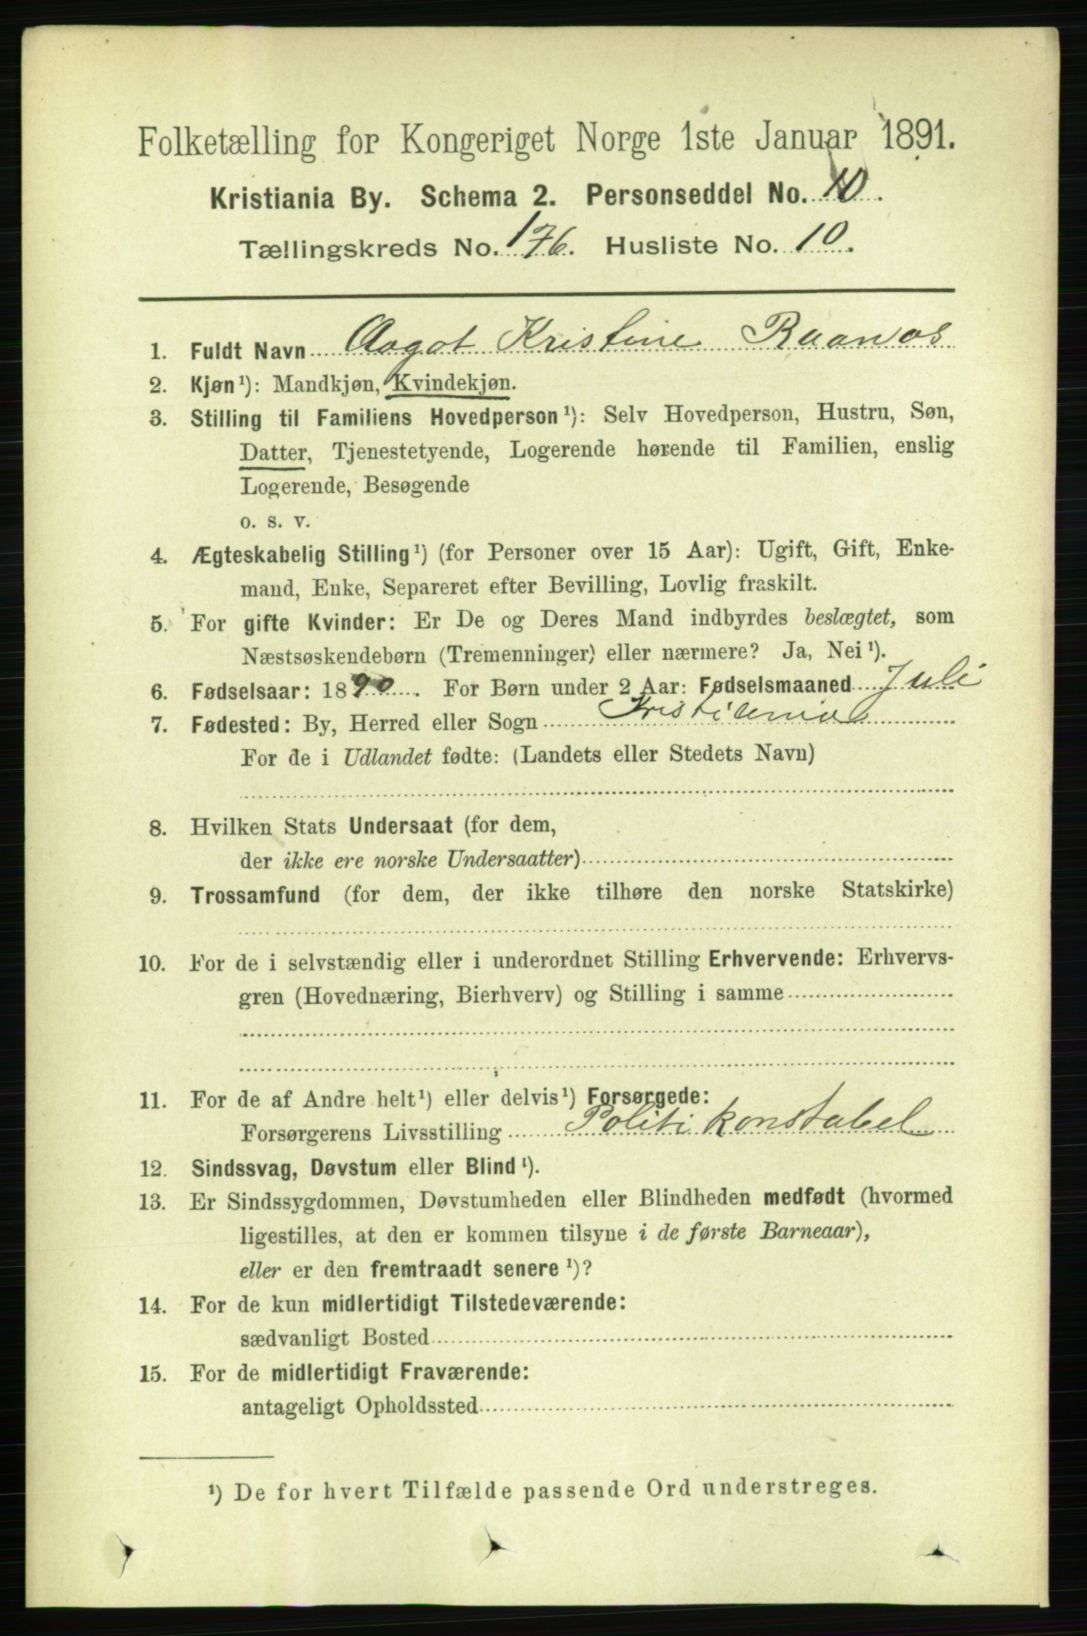 Folketælling for Kongeriget Norge 1ste Januar 1891.
Kristiania By. Schema 2. Personseddel No. 10.
Tællingskreds No. 176. Husliste No. 10.
1. Fuldt Navn Aagot Kristine
2. Kjøn¹): Mandkjøn, Kvindekjøn.
3. Stilling til Familiens Hovedperson¹): Selv Hovedperson, Hustru, Søn,
Datter, Tjenestetyende, Logerende hørende til Familien, enslig
Logerende, Besøgende
o. s. v.
4. Ægteskabelig Stilling¹) (for Personer over 15 Aar): Ugift, Gift, Enke-
mand, Enke, Separeret efter Bevilling, Lovlig fraskilt.
5. For gifte Kvinder: Er De og Deres Mand indbyrdes beslægtet, som
Næstsøskendebørn (Tremenninger) eller nærmere? Ja, Nei¹).
6. Fødselsaar: 1890. For Børn under 2 Aar: Fødselsmaaned Juli
7. Fødested: By, Herred eller Sogn Kristiania
For de i Udlandet fødte: (Landets eller Stedets Navn)
8. Hvilken Stats Undersaat (for dem,
der ikke ere norske Undersaatter)
9. Trossamfund (for dem, der ikke tilhøre den norske Statskirke)
10. For de i selvstændig eller i underordnet Stilling Erhvervende: Erhvervs-
gren (Hovednæring, Bierhverv) og Stilling i samme
11. For de af Andre helt¹) eller delvis¹) Forsørgede:
Forsørgerens Livsstilling Politikonstabel
12. Sindssvag, Døvstum eller Blind¹).
13. Er Sindssygdommen, Døvstumheden eller Blindheden medfødt (hvormed
ligestilles, at den er kommen tilsyne i de første Barneaar),
eller er den fremtraadt senere¹)?
14. For de kun midlertidigt Tilstedeværende:
sædvanligt Bosted
15. For de midlertidigt Fraværende:
antageligt Opholdssted
¹) De for hvert Tilfælde passende Ord understreges.